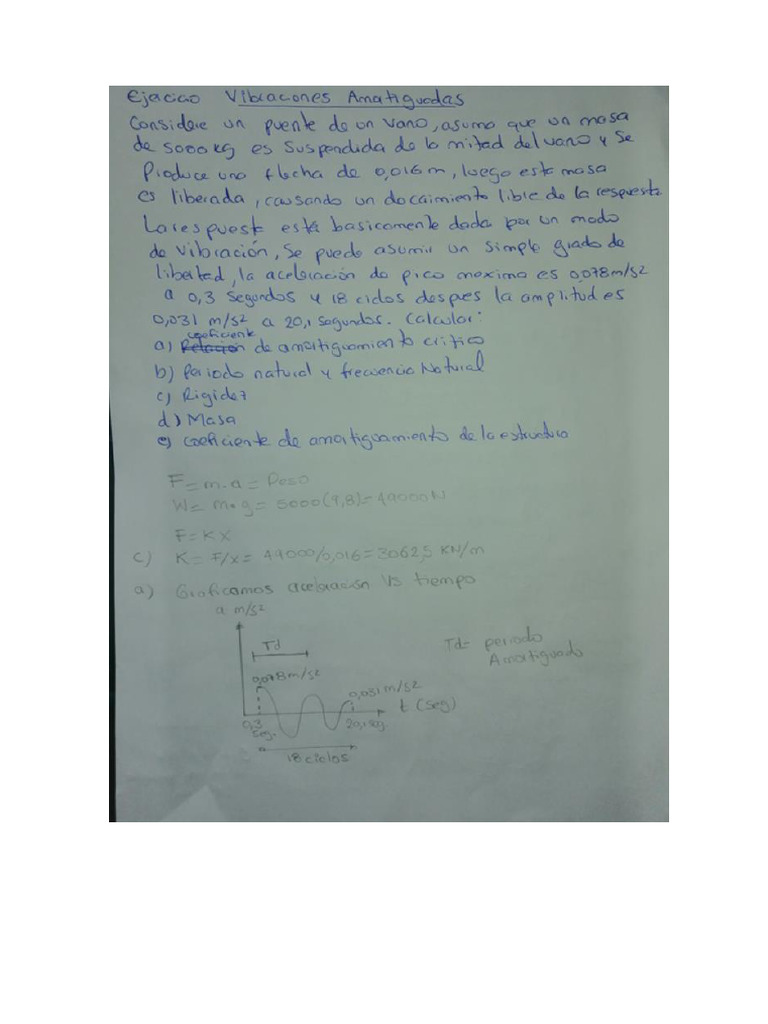 Ejercicio Vibraciones Amortiguadas
Considere un puente de un vano, asuma que un masa
de 5000kg es suspendida de la mitad del vano y se
Produce una flecha de 0,016 m, luego esta masa
es liberada, causando un decaimiento libre de la respuesta
La respuesta está basicamente dada por un modo
de vibración, Se puede asumir un simple grado de
libertad, la aceleración de pico maximo es 0,078m/s2
a 0,3 segundos y 18 ciclos despues la amplitud es
0,031 m/s2 a 20,1 segundos. Calcular:
coeficiente
a) Relación de amortiguamiento critico
b) Periodo natural y frecuencia Natural
c) Rigidez
d) Masa
e) coeficiente de amortiguamiento de la estructura
F = m.a = Peso
W = m.g = 5000(9,8) = 49000N
F = KX
c) K = F/x = 49000/0,016 = 3062,5 KN/m
a) Graficamos aceleración Vs tiempo
a m/s2
Td
Td = periodo
Amortiguado
0,078m/s2
0,031 m/s2
t (seg)
0,3
seg.
20,1 seg.
18 ciclos